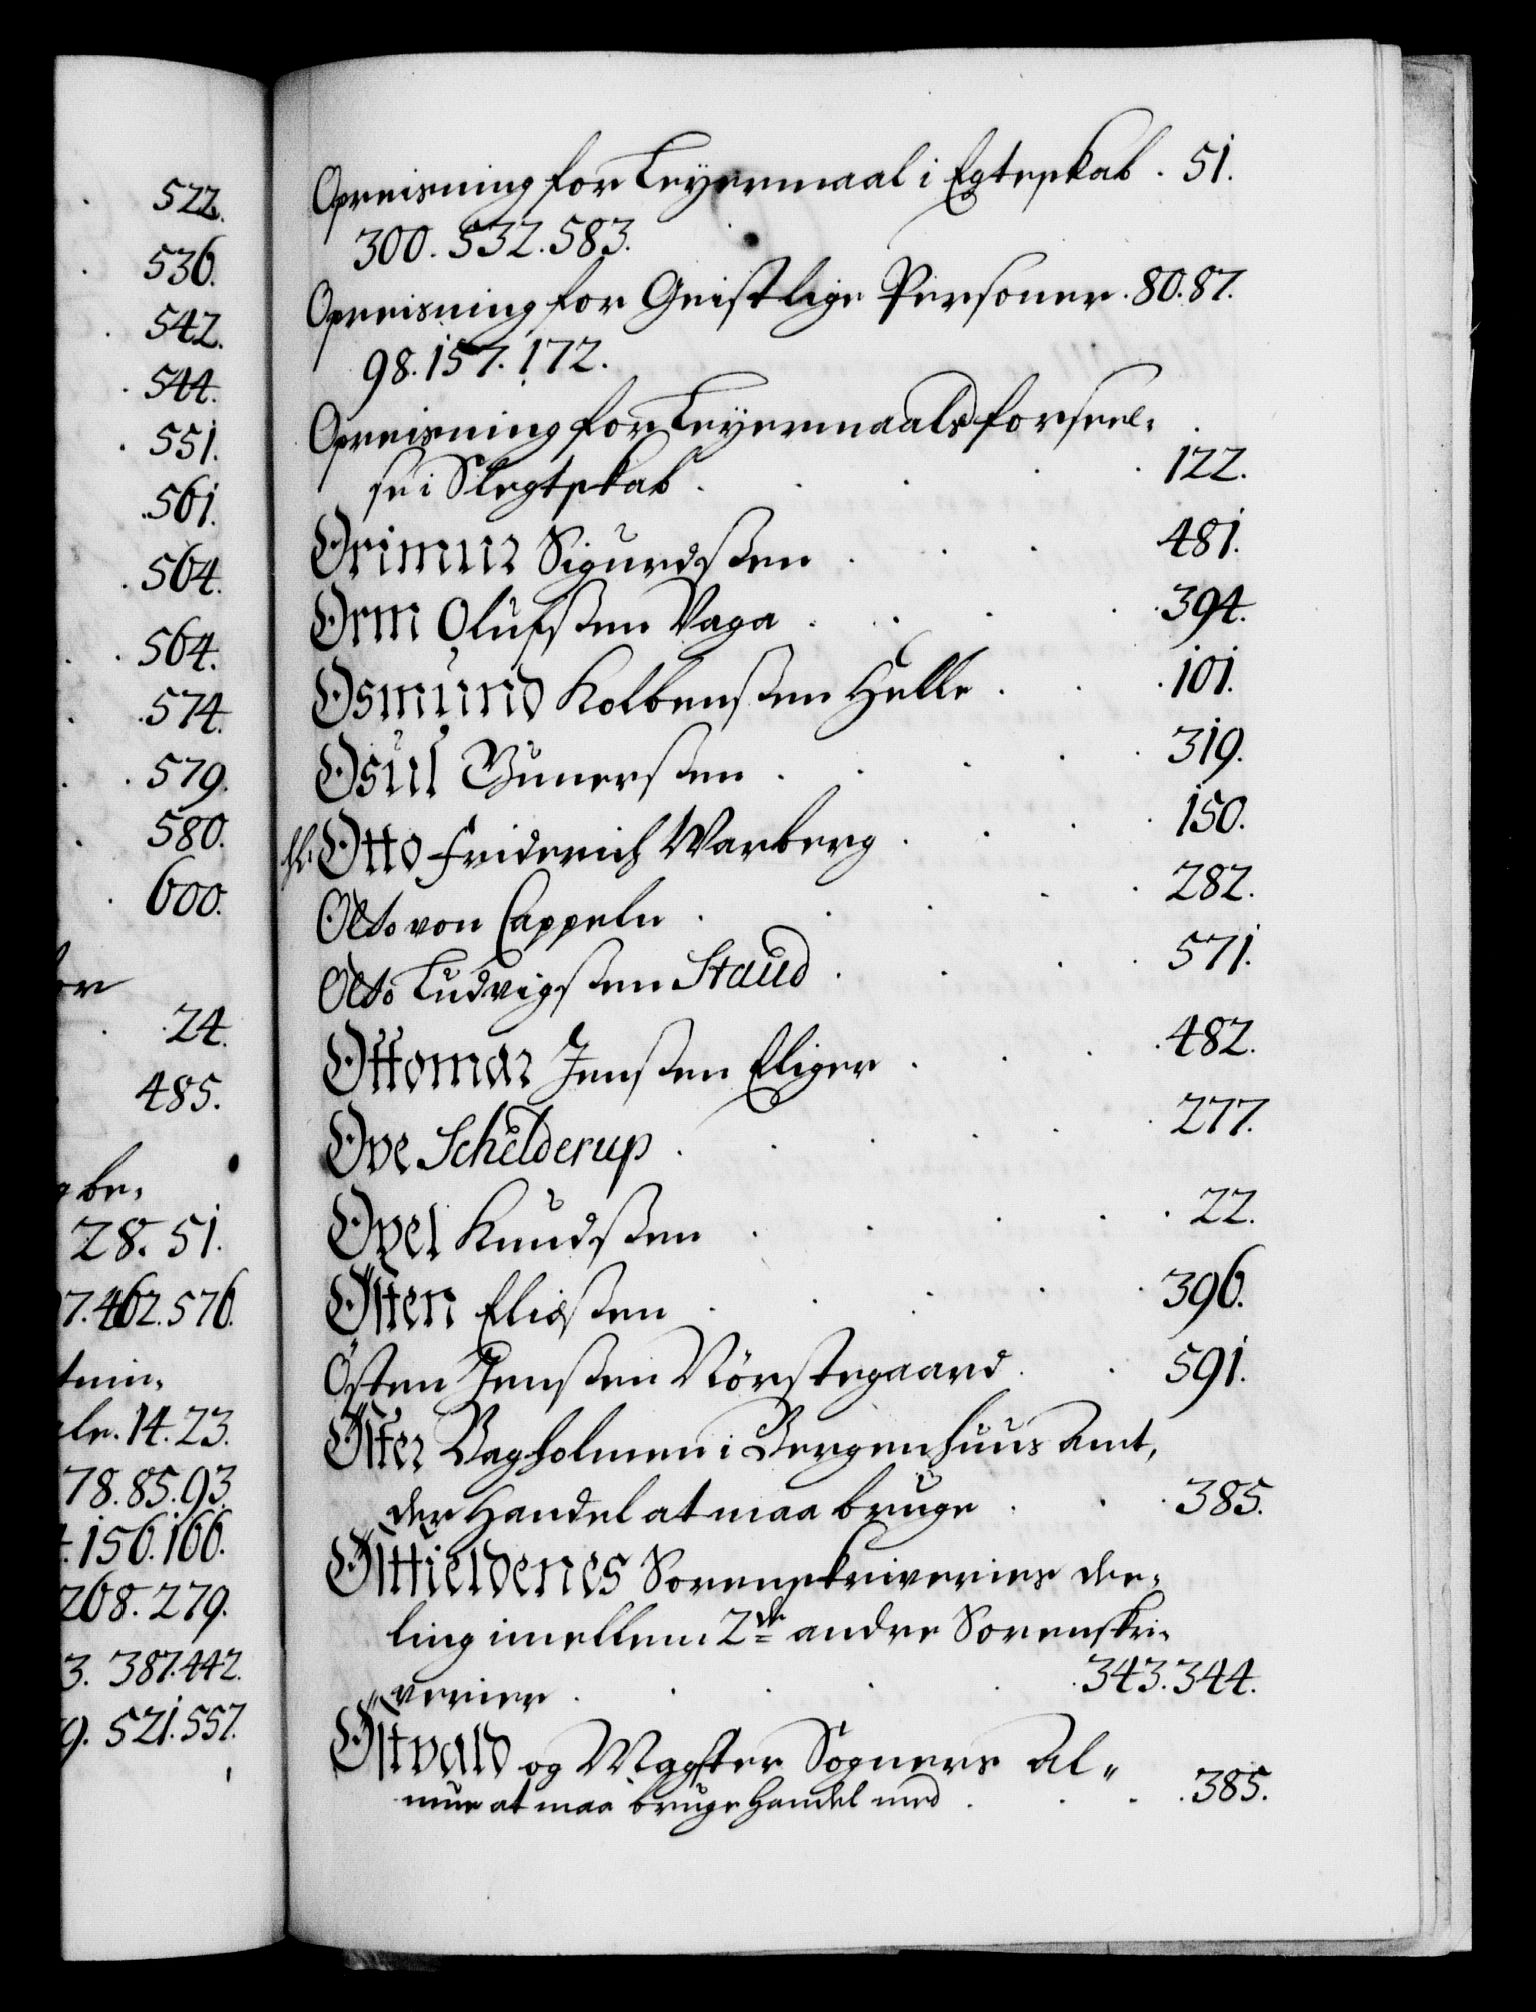 522.
536.
542.
544.
551.
561.
564.
564.
574.
579.
580.
600.
or
24.
485.
g be,
28. 51.
7. 462. 576.
tnin,
le. 14. 23.
78. 85. 93.
. 156. 166.
268. 279.
3. 387. 442.
9. 521. 557.
Opreisning for Leyermaal i Egteskab . 51.
300. 532. 583.
Opreisning for Geistlige Personer . 80. 87.
98. 157. 172.
Opreisning for Leyermaals forseel,
se i Slegtskab . . . . 122.
Orimur Sigurdssen . . . 481.
Orm Olufssen Vaga . . . . 394.
Osmund Kolbenssen Helle . . . 101.
Osul Gunerssen . . . . 319.
Otto Friderich Warberg . . . . 150.
Otto von Cappeln . . . . 282.
Otto Ludvigssen Staud . . . . 571.
Ottomar Jenssen Eliger . . . . 482.
Ove Schelderup . . . . . 277.
Ovel Knudssen . . . . 22.
Østen Eliæssen . . . . 396.
Østen Jenssen Nörstegaard . . 591.
Øster Vagholmen i Bergenhuus Amt,
der Handel at maa bruge . . . 385.
Østfieldenes Sorenskriveries dee,
ling imellem 2de andre Sorenskri,
verier . . . . . 343. 344.
Østvald og Magster Sogners Al,,
mue at maa bruge Handel med . . . 385.